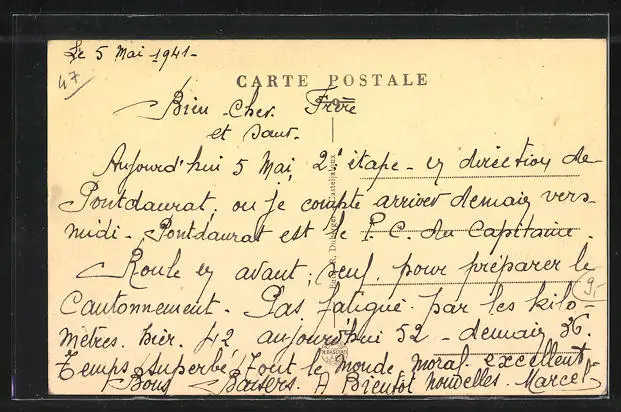 Le 5 Mai 1941-
47
CARTE POSTALE
Bien Cher Frère
et sœur.
Aujourd'hui 5 Mai, 2e étape - en direction de
Pontdaurat, ou je compte arriver demain vers
midi - Pontdaurat est le P.C. du Capitaine.
Roule en avant, seul, pour préparer le
9,-
Cantonnement - Pas fatigué par les kilo
mètres. hier. 42 aujourd'hui 52 - demain 36.
Temps superbe, Tout le Monde, moral excellent
Bons Baisers. A Bientôt Nouvelles. Marcel